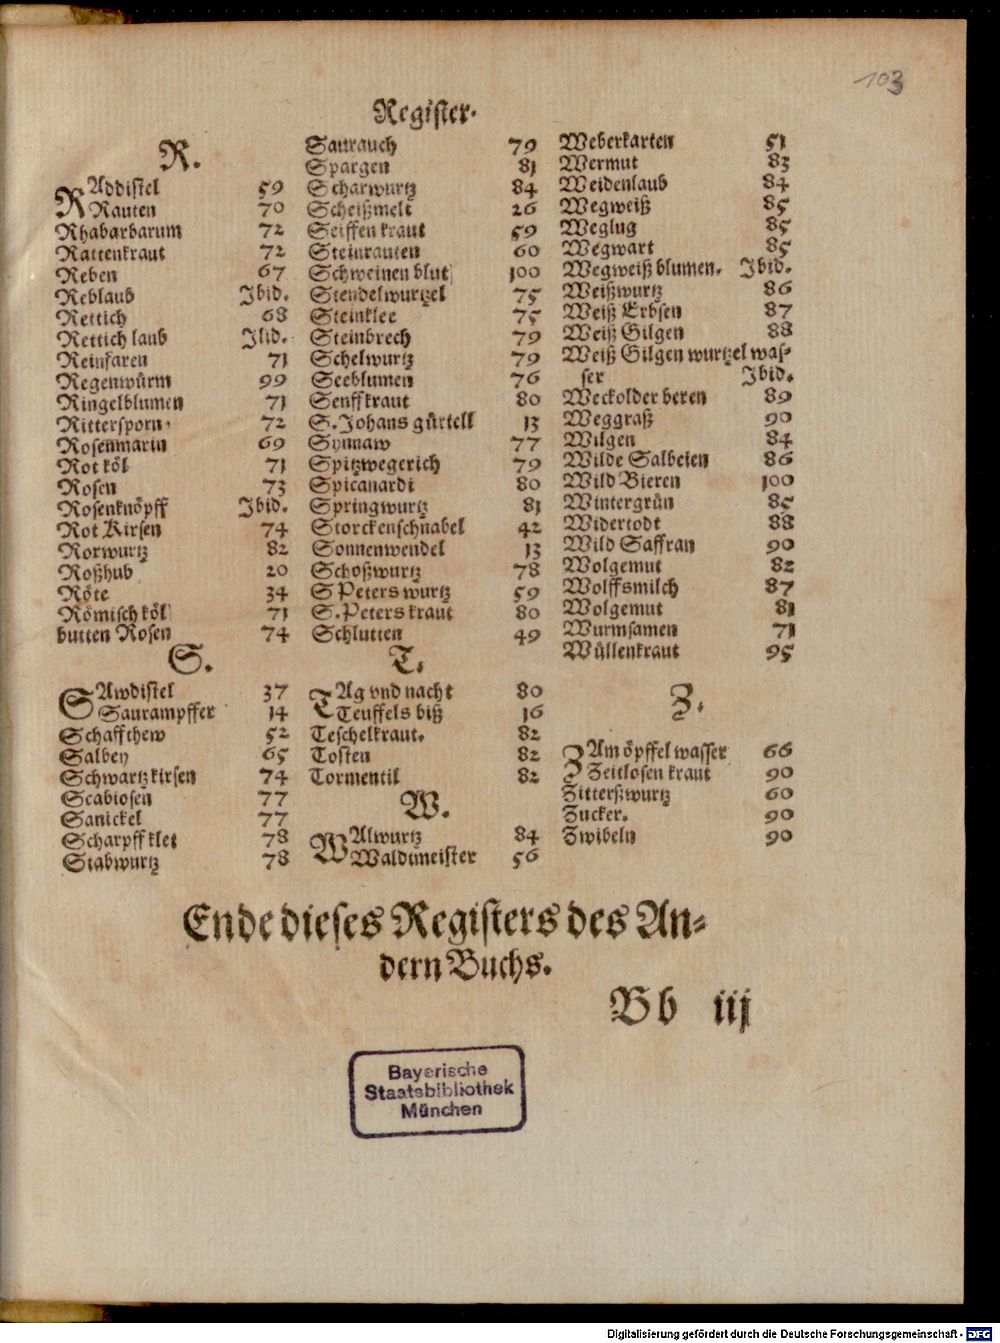 103
Register.
R.
RAddistel 59
Rauten 70
Rhabarbarum 72
Rattenkraut 72
Reben 67
Reblaub Ibid.
Rettich 68
Rettich laub Ibid.
Reinfaren 71
Regenwürm 99
Ringelblumen 71
Rittersporn. 72
Rosenmarin 69
Rot köl 71
Rosen 73
Rosenknöpff Ibid.
Rot Kirsen 74
Rorwurtz 82
Roßhub 20
Röte 34
Römisch köl 71
butten Rosen 74
S.
SAwdistel 37
Saurampffer 14
Schaffthew 52
Salbey 65
Schwartz kirsen 74
Scabiosen 77
Sanickel 77
Scharpff klet 78
Stabwurtz 78
Saurauch 79
Spargen 81
Scharwurtz 84
Scheißmelt 26
Seiffen kraut 59
Steinrauten 60
Schweinen blut 100
Stendelwurtzel 75
Steinklee 75
Steinbrech 79
Schelwurtz 79
Seeblumen 76
Senffkraut 80
S. Johans gürtell 13
Synnaw 77
Spitzwegerich 79
Spicanardi 80
Springwurtz 81
Storckenschnabel 42
Sonnenwendel 13
Schoßwurtz 78
S Peters wurtz 59
S. Peters kraut 80
Schlutten 49
T.
TAg vnd nacht 80
Teuffels biß 16
Teschelkraut. 82
Tosten 82
Tormentil 82
W.
WAlwurtz 84
Waldtmeister 56
Weberkarten 51
Wermut 83
Weidenlaub 84
Wegweiß 85
Weglug 85
Wegwart 85
Wegweiß blumen. Ibid.
Weißwurtz 86
Weiß Erbsen 87
Weiß Gilgen 88
Weiß Gilgen wurtzel was-
ser Ibid.
Weckolder beren 89
Weggraß 90
Wilgen 84
Wilde Salbeien 86
Wild Bieren 100
Wintergrün 85
Widertodt 88
Wild Saffran 90
Wolgemut 82
Wolffsmilch 87
Wolgemut 81
Wurmsamen 71
Wüllenkraut 95
Z.
ZAm öpffel wasser 66
Zeitlosen kraut 90
Zitterßwurtz 60
Zucker. 90
Zwibeln 90
Ende dieses Registers des An-
dern Buchs.
Bb iij
Bayerische
Staatsbibliothek
München
Digitalisierung gefördert durch die Deutsche Forschungsgemeinschaft - DFG